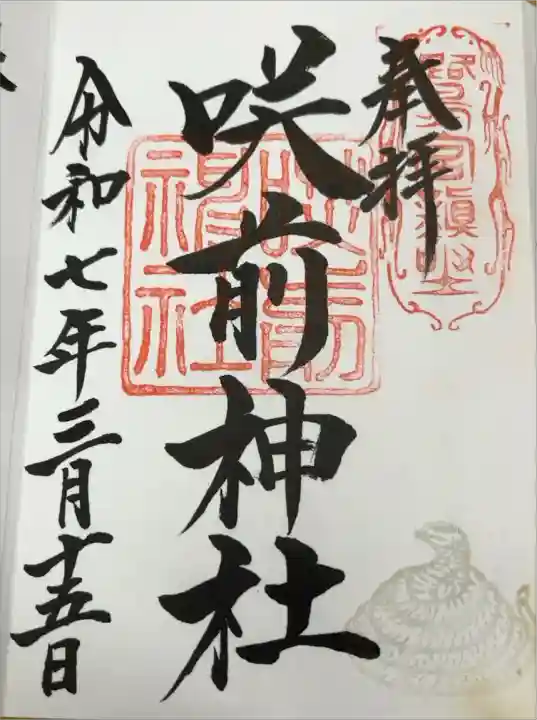 奉拝
咲前神社
咲前神社
令和七年三月十五日